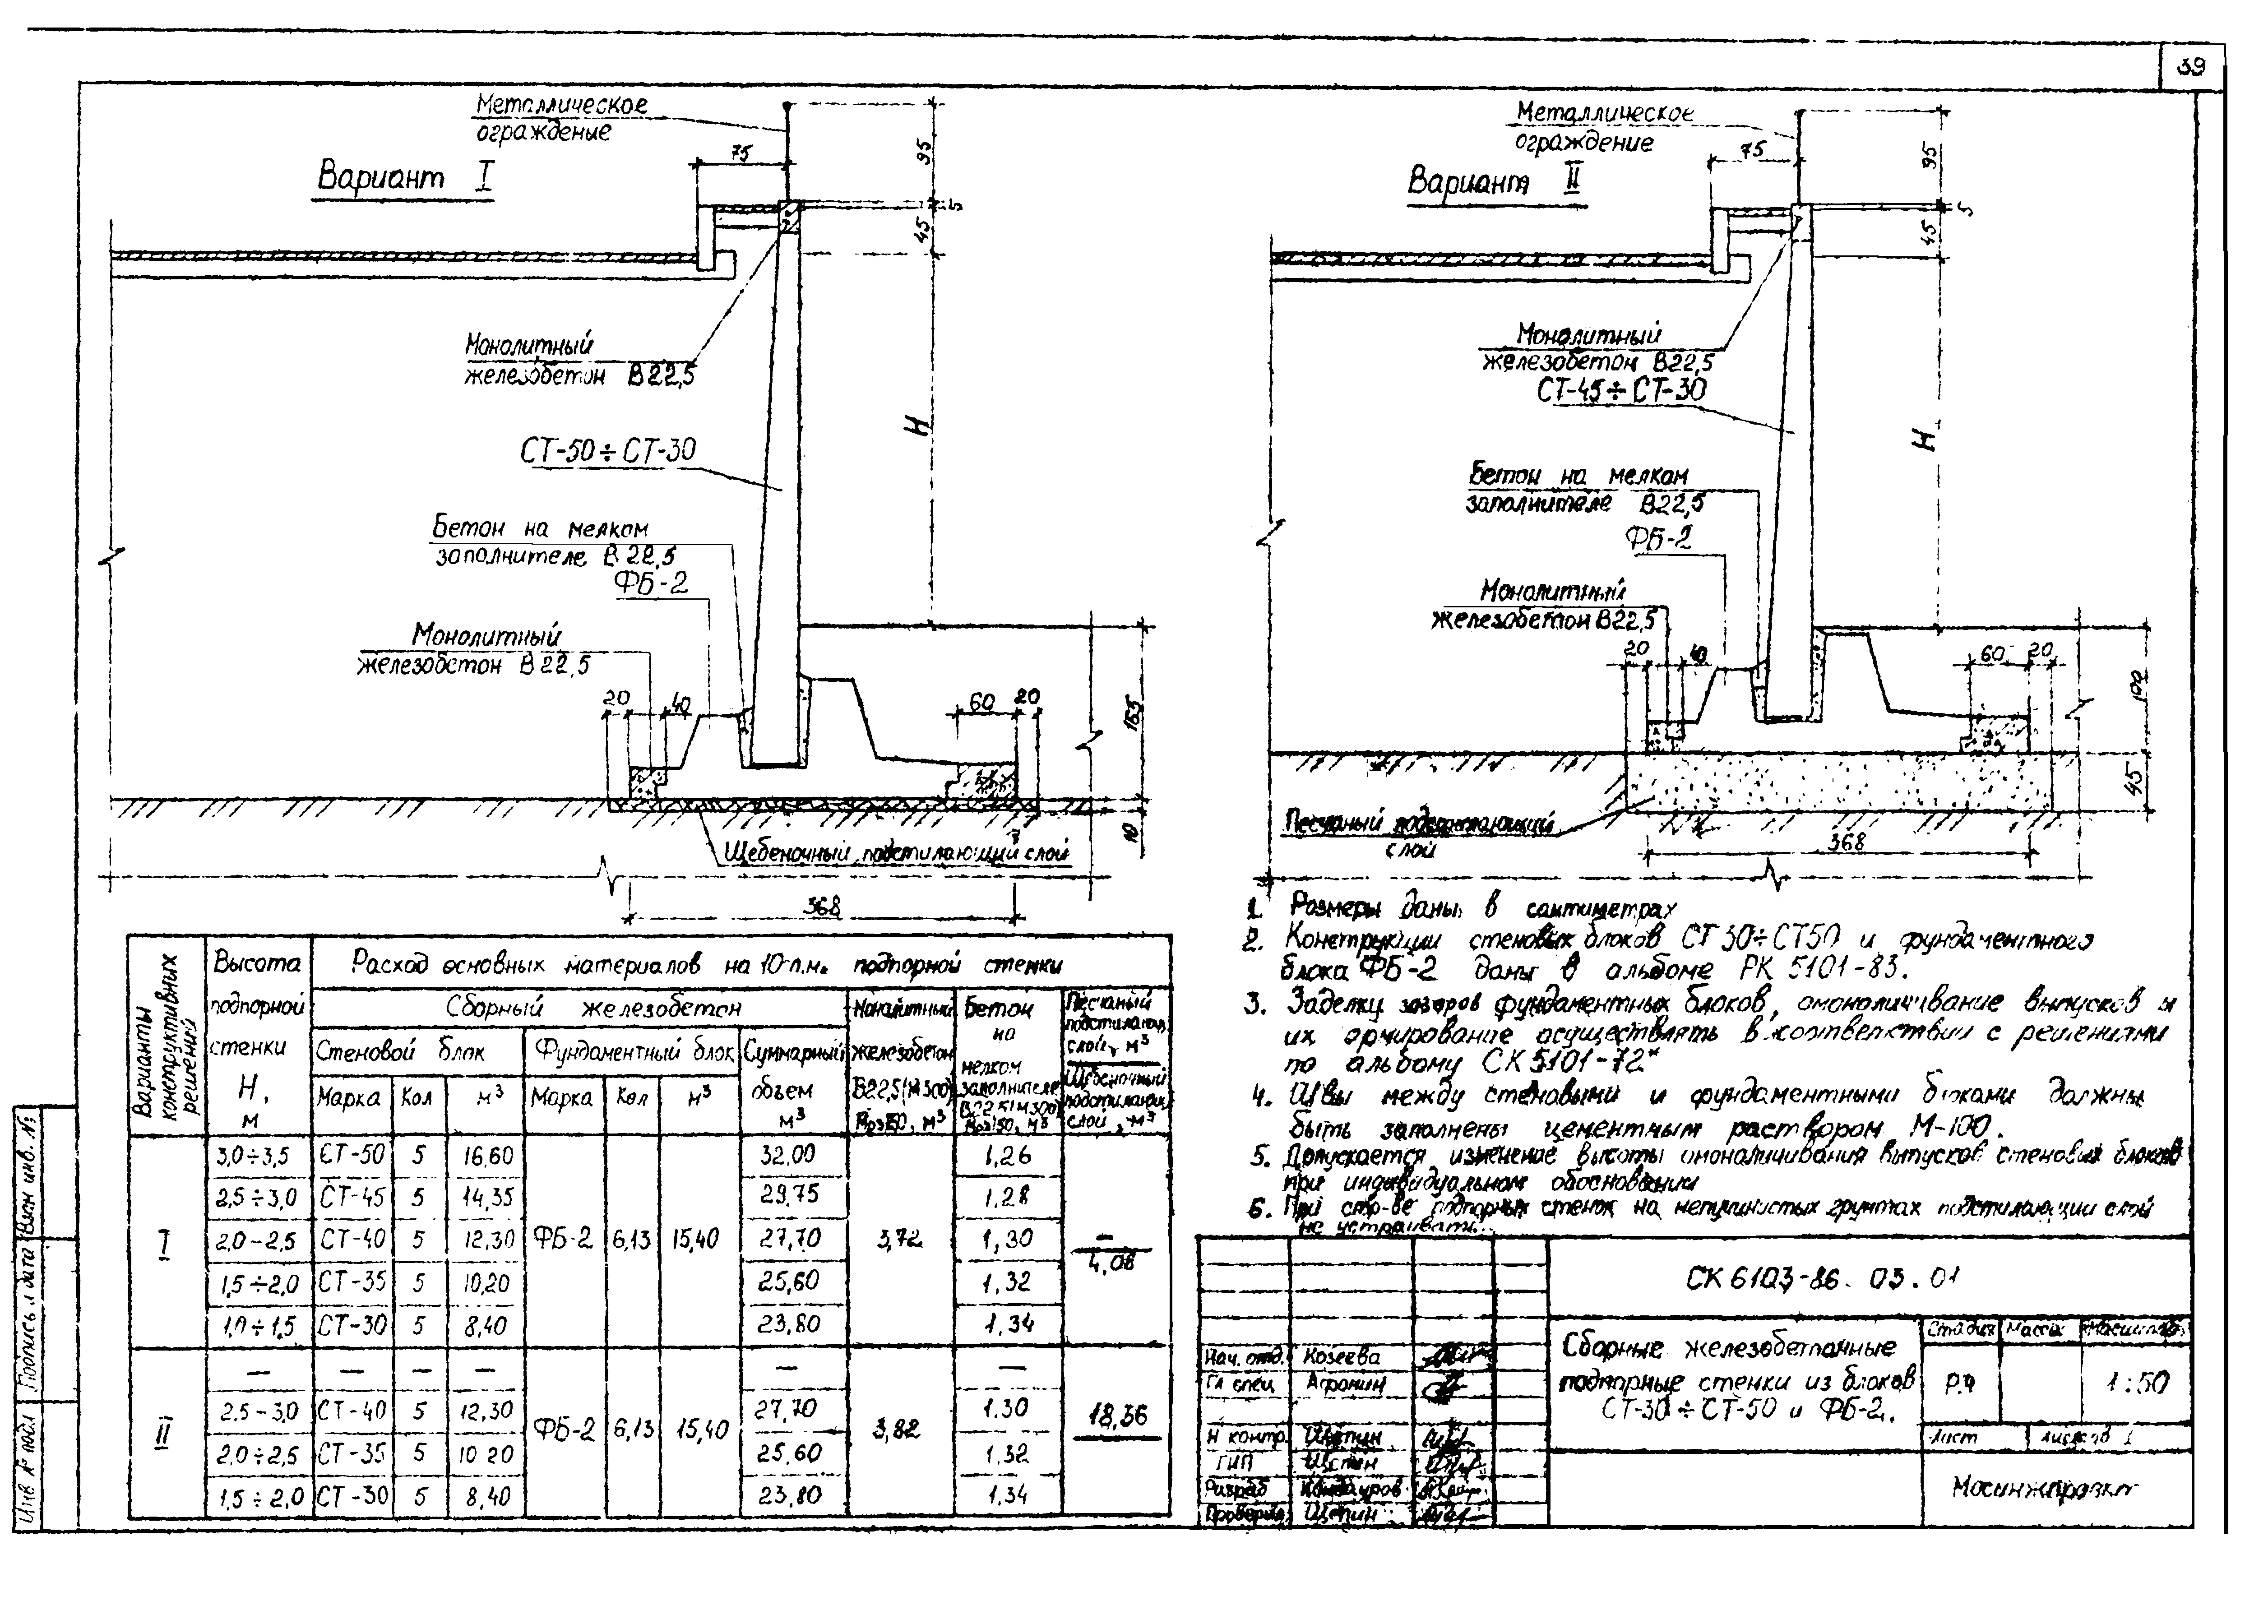 39
Металлическое
ограждение
Вариант I
75
95
5
45
Монолитный
железобетон В22,5
H
СТ-50÷СТ-30
Бетон на мелком
заполнителе В 22,5
ФБ-2
Монолитный
железобетон В 22,5
20
40
60
20
155
10
Щебеночный подстилающий слой
368
Металлическое
ограждение
Вариант II
75
95
5
45
Монолитный
железобетон В22,5
СТ-45÷СТ-30
H
Бетон на мелком
заполнителе В22,5
ФБ-2
Монолитный
железобетон В22,5
20
40
60
20
100
45
Песчаный подстилающий
слой
368
1. Размеры даны в сантиметрах
2. Конструкции стеновых блоков СТ30÷СТ50 и фундаментного
блока ФБ-2 даны в альбоме РК 5101-83.
3. Заделку зазоров фундаментных блоков, омоноличивание выпусков и
их армирование осуществлять в соответствии с решениями
по альбому СК 5101-72*
4. Швы между стеновыми и фундаментными блоками должны
быть заполнены цементным раствором М-100.
5. Допускается изменение высоты омоноличивания выпусков стеновых блоков
при индивидуальном обосновании
6. При стр-ве подпорных стенок на непучинистых грунтах подстилающий слой
не устраивать.
Варианты конструктивных решений
Высота подпорной стенки H, м
Расход основных материалов на 10 п.м. подпорной стенки
Сборный железобетон
Стеновой блок
Фундаментный блок
Суммарный объем м³
Марка Кол м³ Марка Кол м³
Монолитный железобетон В22,5(М300) Мрз150, м³
Бетон на мелком заполнителе В22,5(М300) Мрз150, м³
Песчаный подстилающ. слой, м³
Щебеночный подстилающ. слой, м³
I
3,0÷3,5 СТ-50 5 16,60 32,00 1,26
2,5÷3,0 СТ-45 5 14,35 29,75 1,28
2,0-2,5 СТ-40 5 12,30 ФБ-2 6,13 15,40 27,70 3,72 1,30 — 4,08
1,5÷2,0 СТ-35 5 10,20 25,60 1,32
1,0÷1,5 СТ-30 5 8,40 23,80 1,34
II
— — — — — —
2,5-3,0 СТ-40 5 12,30 ФБ-2 6,13 15,40 27,70 3,82 1.30 18,36
2,0÷2,5 СТ-35 5 10 20 25,60 1.32
1,5÷2,0 СТ-30 5 8,40 23,80 1,34
СК 6103-86. 03.01
Сборные железобетонные
подпорные стенки из блоков
СТ-30÷СТ-50 и ФБ-2.
Стадия Масса Масштаб
Р.Ч 1:50
Лист Листов 1
Мосинжпроект
Нач. отд. Козеева
Гл спец Агронин
Н контр. Щепин
ГИП Щепин
Разраб
Проверил Щепин
Взам инв. №
Подпись и дата
Инв № подл